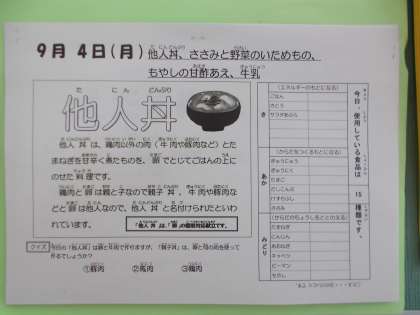 9月 4日(月) 他人丼、ささみと野菜のいためもの、
もやしの甘酢あえ、牛乳
他人丼
た にん どんぶり
他人丼は、鶏肉以外の肉(牛肉や豚肉など)とた
まねぎを甘辛く煮たものを、卵でとじてごはんの上に
のせた料理です。
鶏肉と卵は親と子なので親子丼、牛肉や豚肉な
どと卵は他人なので、他人丼と名付けられたといわ
れています。
「他人丼」は、「卵」の個別対応献立です。
クイズ
今日の「他人丼」は豚と牛肉で作りますが、「親子丼」は、卵と何の肉を使って
作るでしょうか?
①豚肉 ②馬肉 ③鶏肉
今日、使用している食品は 15 種類です。
き
(エネルギーのもとになる)
ごはん
さとう
サラダあぶら
あか
(からだをつくるもとになる)
ぎゅうにゅう
ぎゅうにく
たまご
だしこんぶ
けずりぶし
ささみ
みどり
(からだのちょうしをととのえる)
たまねぎ
にんじん
あおねぎ
キャベツ
ピーマン
もやし